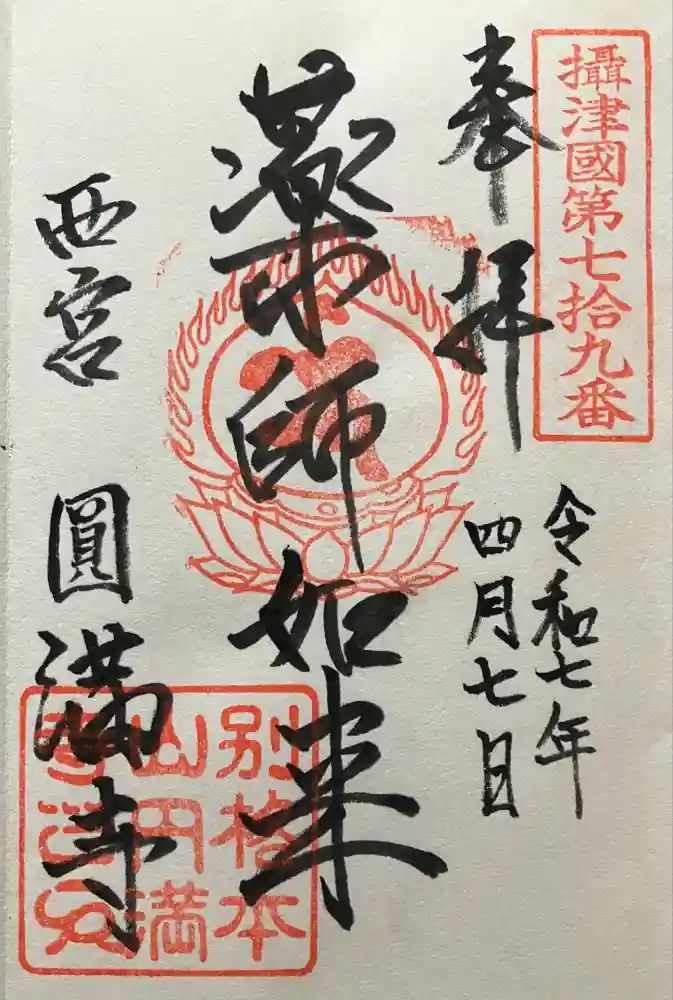 攝津國第七拾九番
奉拝
令和七年
四月七日
薬師如来
西宮 圓滿寺
別格本
山円満